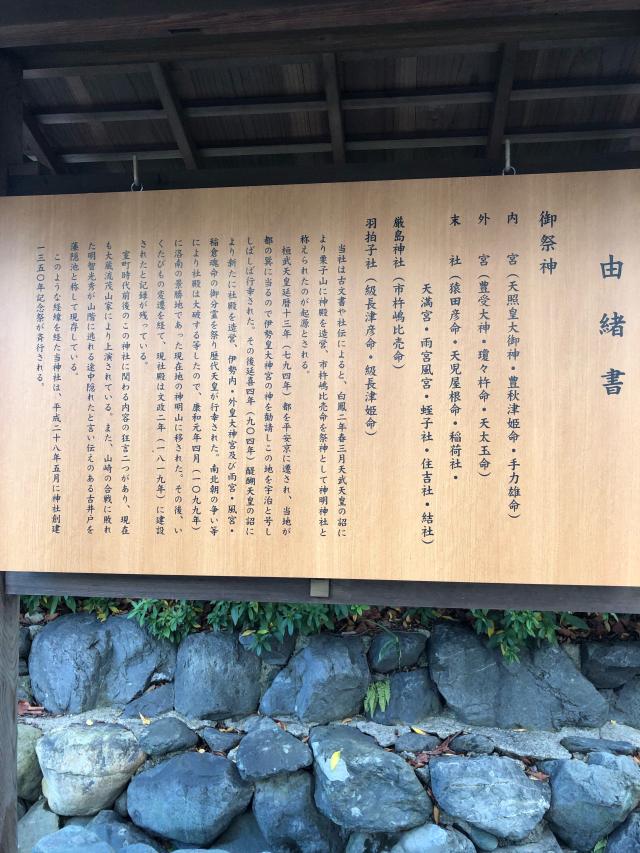 由緒書
御祭神
内　宮（天照皇大御神・豊秋津姫命・手力雄命）
外　宮（豊受大神・瓊々杵命・天太玉命）
末　社（猿田彦命・天児屋根命・稲荷社・
天満宮・雨宮風宮・蛭子社・住吉社・結社）
厳島神社（市杵嶋比売命）
羽拍子社（級長津彦命・級長津姫命）
当社は古文書や社伝によると、白鳳二年春三月天武天皇の詔に
より栗子山に神殿を造営、市杵嶋比売命を祭神として神明神社と
称えられたのが起源とされる。
桓武天皇延暦十三年（七九四年）都を平安京に遷され、当地が
都の巽に当るので伊勢皇大神宮の神を勧請しこの地を宇治と号し
しばしば行幸された。その後延喜四年（九〇四年）醍醐天皇の詔に
より新たに社殿を造営、伊勢内・外皇大神宮及び雨宮・風宮・
稲倉魂命の御分霊を祭り歴代天皇が行幸された。南北朝の争い等
により社殿は大破する等したので、康和元年四月（一〇九九年）
に洛南の景勝地であった現在地の神明山に移された。その後、い
くたびもの変遷を経て、現社殿は文政二年（一八一九年）に建設
されたと記録が残っている。
室町時代前後のこの神社に関わる内容の狂言二つがあり、現在
も大蔵流茂山家により上演されている。また、山崎の合戦に敗れ
た明智光秀が山階に逃れる途中隠れたと言い伝えのある古井戸を
藻隠池と称して現存している。
このような経緯を経た当神社は、平成二十八年五月に神社創建
一三五〇年記念祭が斉行される。